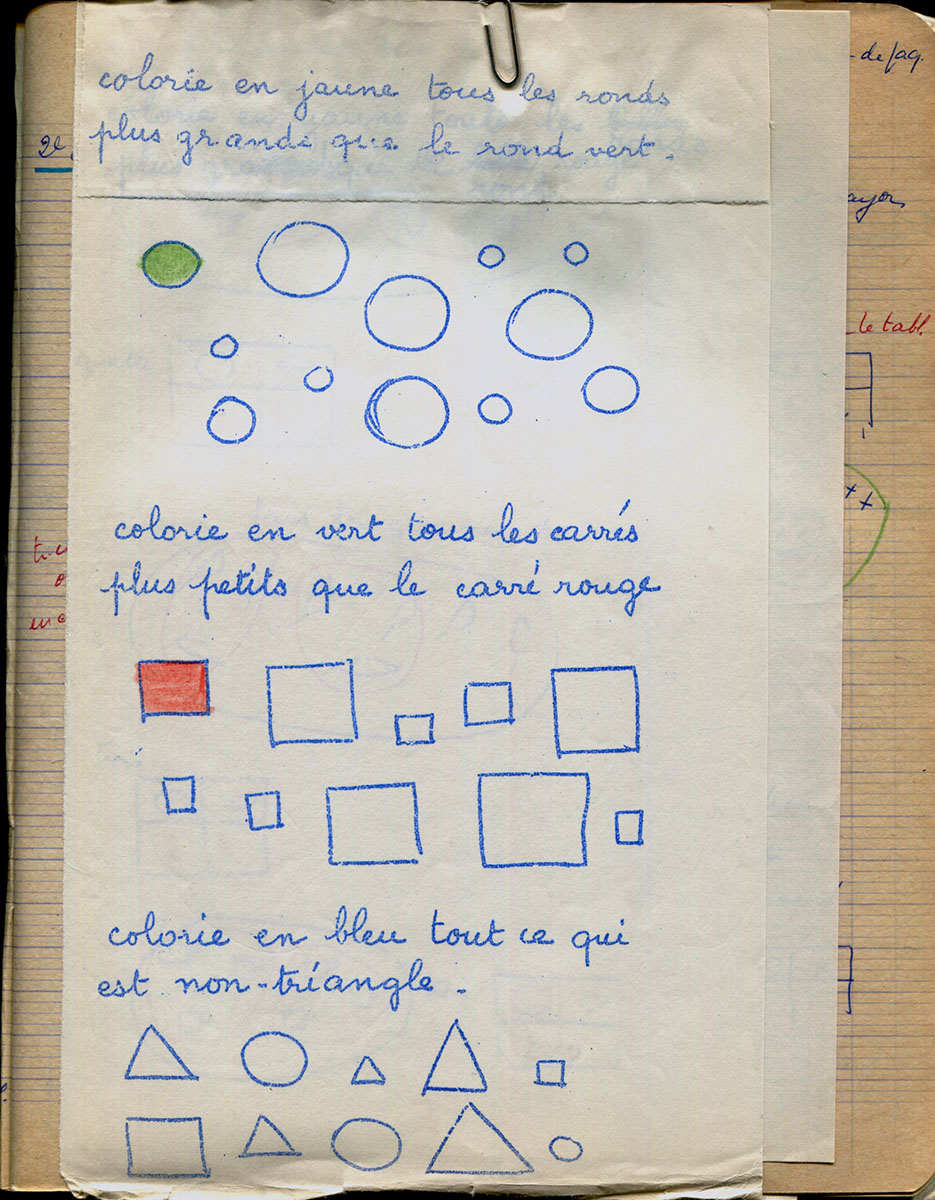 colorie en jaune tous les ronds
plus grands que le rond vert.
colorie en vert tous les carrés
plus petits que le carré rouge
colorie en bleu tout ce qui
est non-triangle.
2e.
de faq.
le tabl